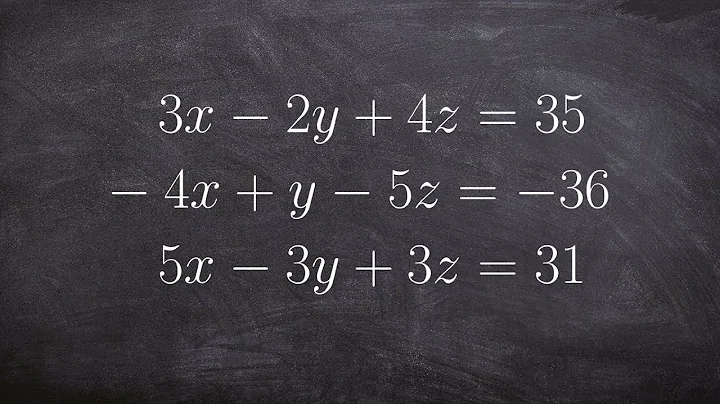 3x − 2y + 4z = 35
− 4x + y − 5z = −36
5x − 3y + 3z = 31